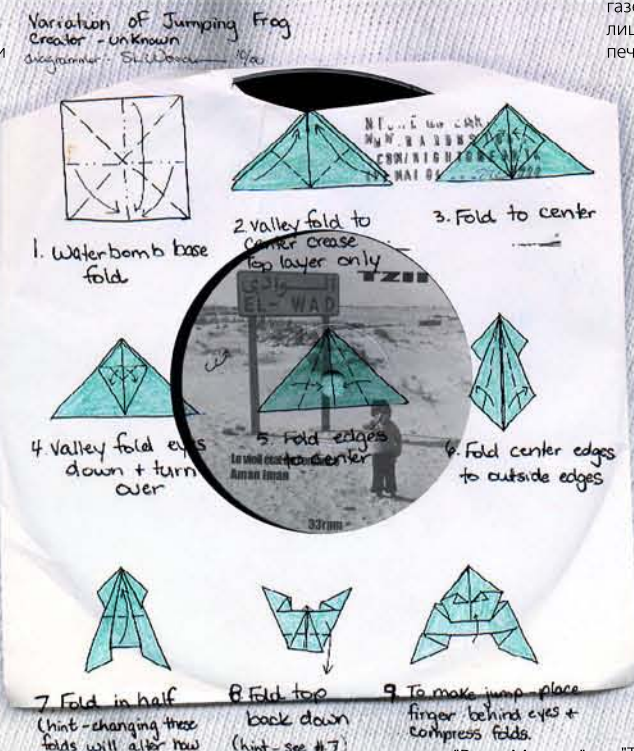 Variation of Jumping Frog
Creator - unknown
diagrammer - 10/00
газе
лиц
печ
и
1. Waterbomb base
fold
2 valley fold to
center crease
Top layer only
3. Fold to center
TZII
الـــوادي
EL- WAD
4. Valley fold eyes
down + turn
over
5. Fold edges
to center
Aman Iman
33rpm
6. Fold center edges
to outside edges
7 Fold in half
(hint - changing these
folds will alter how
8 Fold top
back down
(hint - see #7)
9 To make jump - place
finger behind eyes +
compress folds.